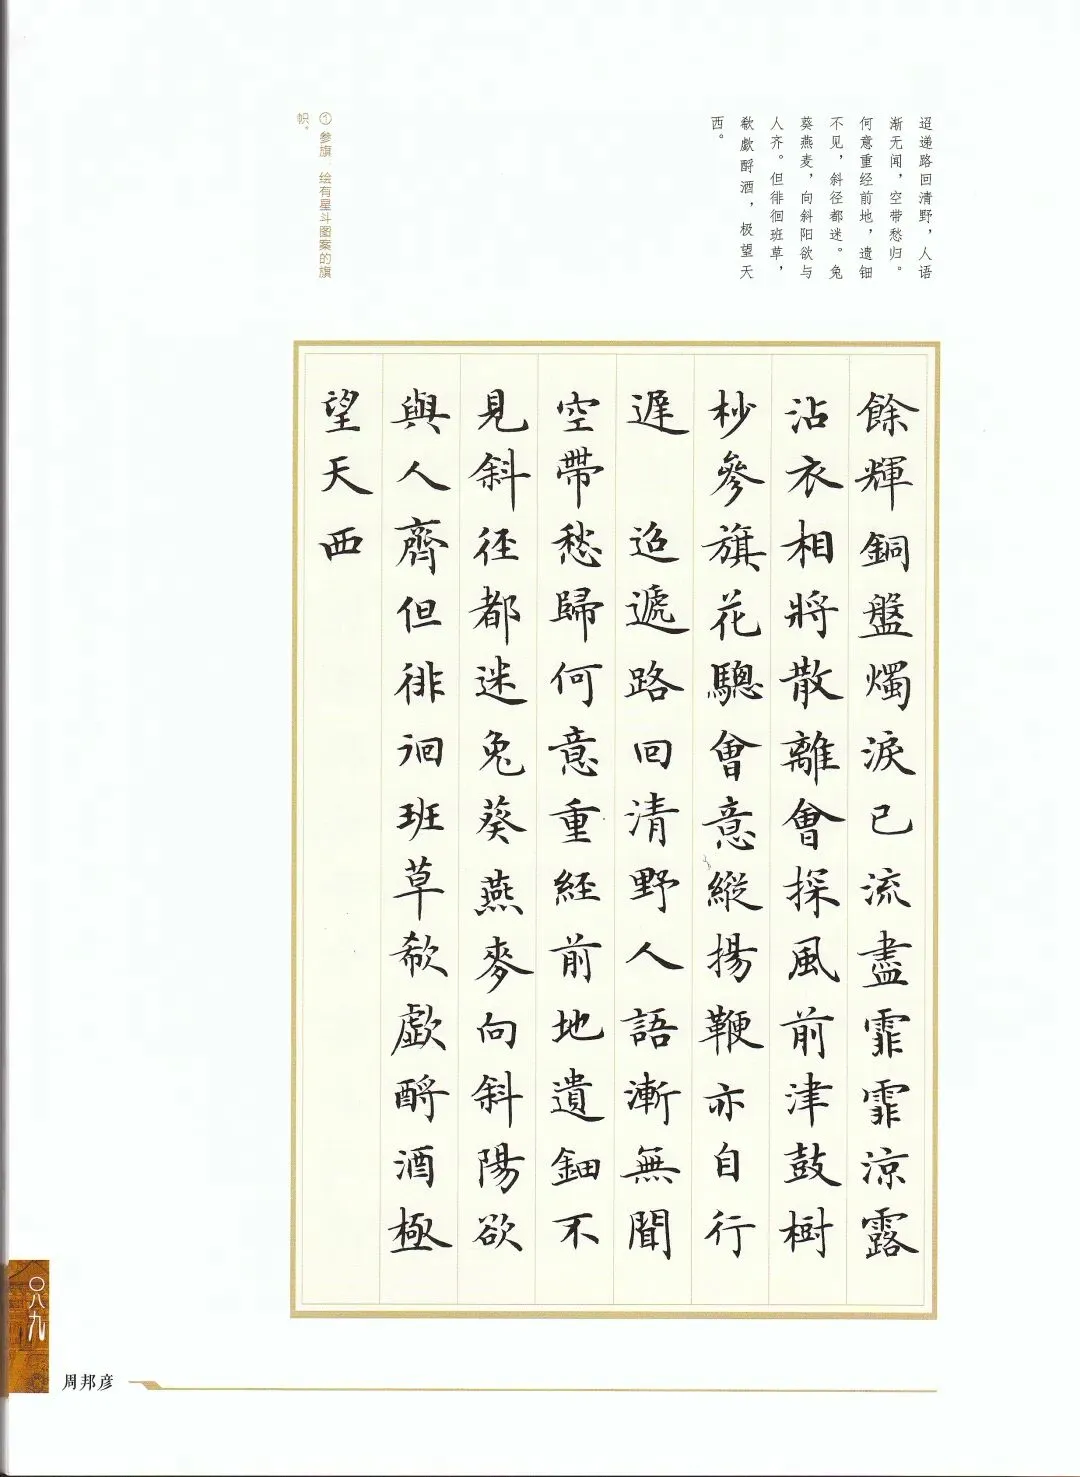 迢递路回清野，人语
渐无闻，空带愁归。
何意重经前地，遗钿
不见，斜径都迷。兔
葵燕麦，向斜阳欲与
人齐。但徘徊班草，
欷歔酹酒，极望天
西。
① 参旗：绘有星斗图案的旗
帜。
餘輝銅盤燭淚已流盡霏霏涼露
沾衣相將散離會探風前津鼓樹
杪參旗花驄會意縱揚鞭亦自行
遲 迢遞路回清野人語漸無聞
空帶愁歸何意重經前地遺鈿不
見斜徑都迷兔葵燕麥向斜陽欲
與人齊但徘徊班草欷歔酹酒極
望天西
〇八九
周邦彦